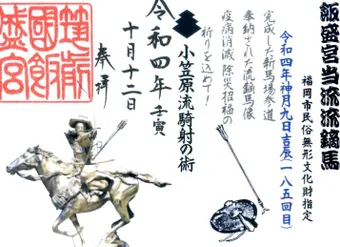 飯盛宮当流流鏑馬
福岡市民俗無形文化財指定
令和四年神月九日吉辰(一八五回目)
完成した新馬場参道
奉納された流鏑馬像
疫病消滅 除災招福の
祈りを込めて!
小笠原流騎射の術
令和四年 壬寅
十月十二日
奉拝
筑前國飯盛宮